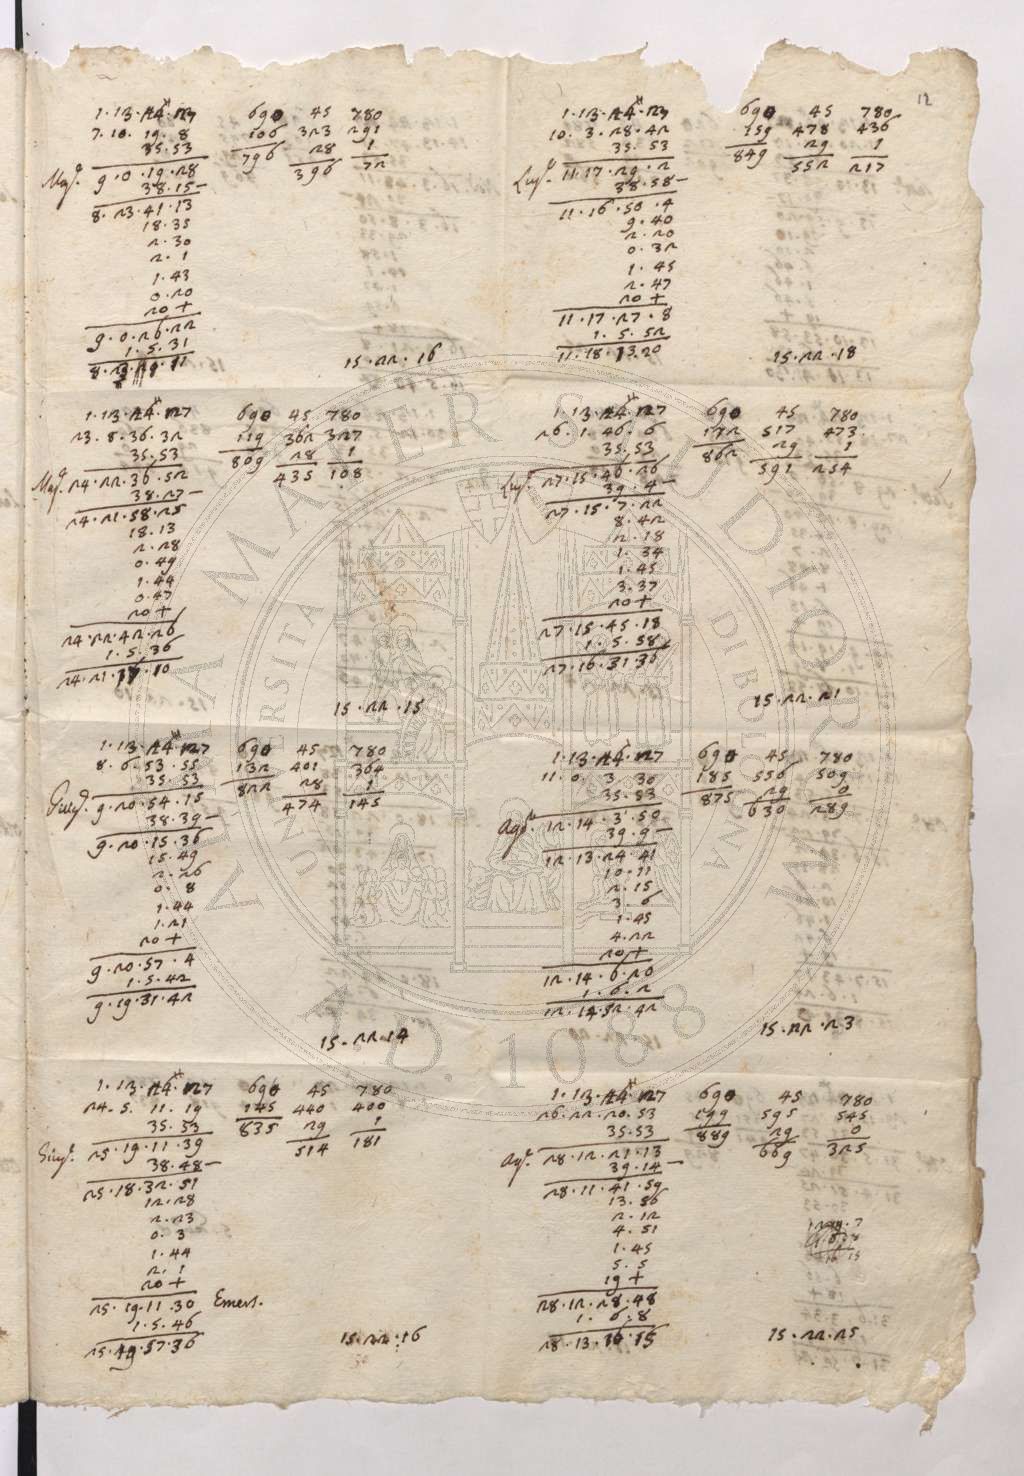 12
1·13·24·27 690 45 780
7·10·19·8 106 323 291
35·53 796 28 1
Mag. 9·0·19·28 396 72
38·15–
8·23·41·13
18·35
2·30
2·1
1·43
0·20
20+
9·0·26·22
1·5·31
15·22·16
1·13·24·27 690 45 780
23·8·36·32 119 362 327
35·53 809 28 1
Mag. 24·22·36·52 435 108
38·27–
24·21·58·25
18·13
2·28
0·49
1·44
0·47
20+
24·22·42·26
1·5·36
24·21·17·10
15·22·15
1·13·24·27 690 45 780
8·6·53·55 132 401 364
35·53 822 28 1
Giug. 9·20·54·15 474 145
38·39–
9·20·15·36
15·49
2·26
0·8
1·44
1·21
20+
9·20·57·4
1·5·42
9·19·31·42
15·22·14
1·13·24·27 690 45 780
24·5·11·19 145 440 400
35·53 835 29 1
Giug. 25·19·11·39 514 181
38·48–
25·18·32·51
12·28
2·23
0·3
1·44
2·1
20+
25·19·11·30 Emers.
1·5·46
25·19·57·36
15·22·16
1·13·24·27 690 45 780
10·3·28·42 159 478 436
35·53 849 29 1
Lug. 11·17·29·2 552 217
38·58–
11·16·50·4
9·40
2·20
0·32
1·45
2·47
20+
11·17·27·8
1·5·52
11·18·13·20
15·22·18
1·13·24·27 690 45 780
26·1·46·6 172 517 473
35·53 862 29 1
Lug. 27·15·46·26 591 254
39·4–
27·15·7·22
8·42
2·18
1·34
1·45
3·37
20+
27·15·45·18
1·5·58
27·16·31·36
15·22·21
1·13·24·27 690 45 780
11·0·3·30 185 556 509
35·53 875 29 0
Ago. 12·14·3·50 630 289
39·9–
12·13·24·41
10·11
2·15
3·6
1·45
4·22
20+
12·14·6·20
1·6·2
12·14·52·42
15·22·23
1·13·24·27 690 45 780
26·22·20·53 199 595 545
35·53 889 29 0
Ag. 28·12·21·13 669 325
39·14–
28·11·41·59
13·56
2·12
4·51
1·45
5·5
19+
28·12·28·48
1·6·8
28·13·16·15
15·22·25
ALMA MATER STUDIORUM
UNIVERSITÀ DI BOLOGNA
A.D. 1088